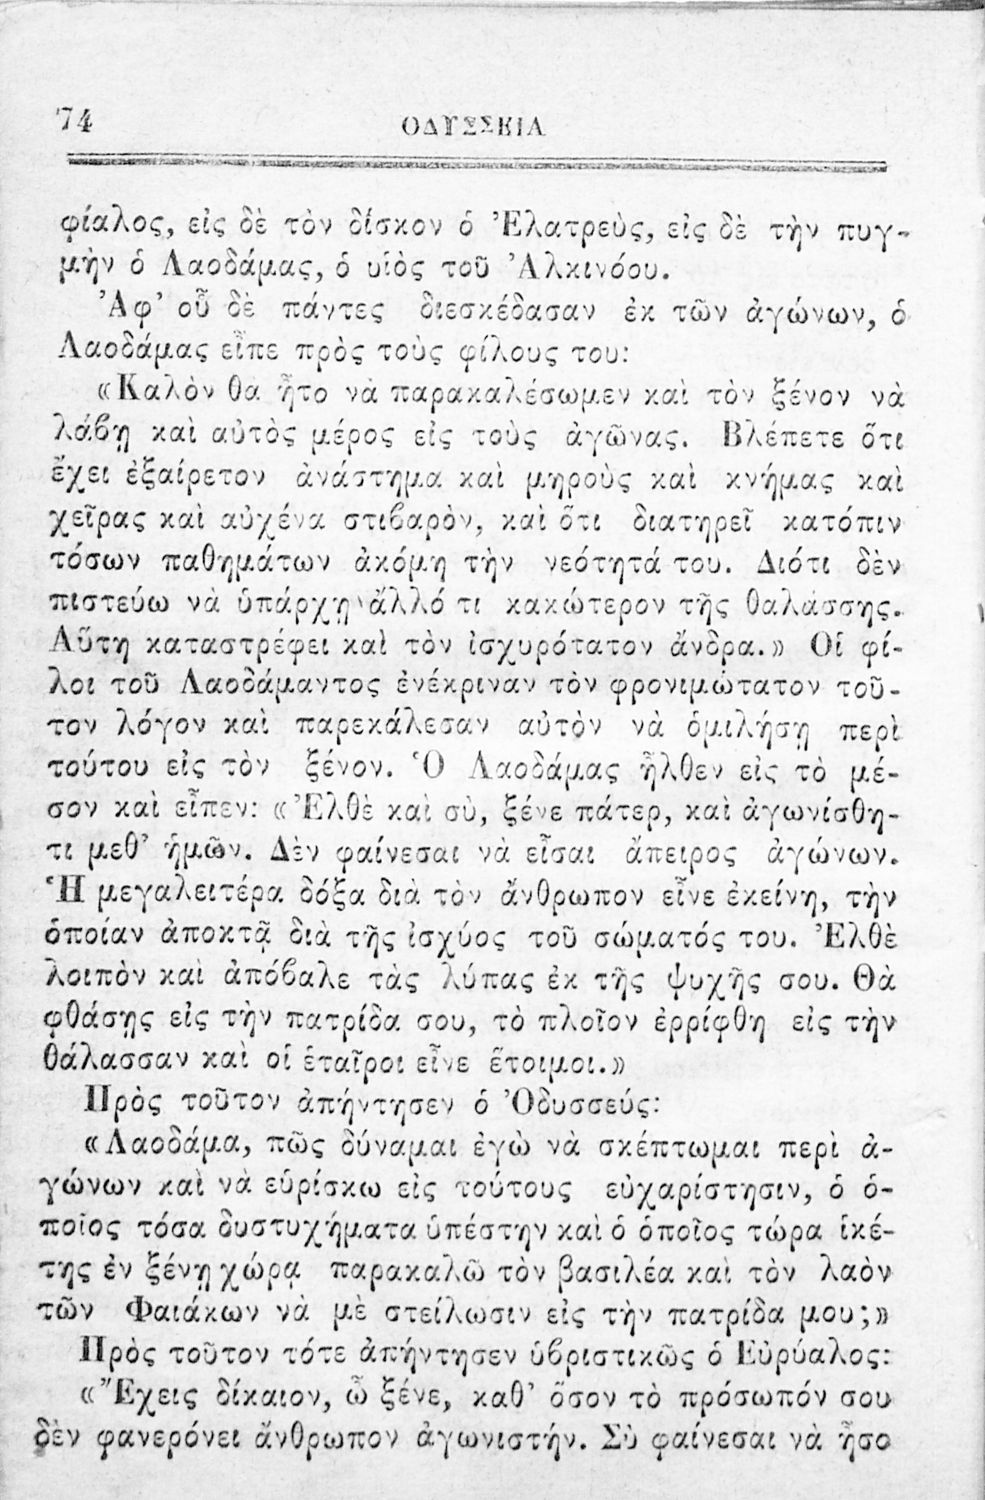 74
ΟΔΥΣΣΕΙΑ
φίαλος, εἰς δὲ τὸν δίσκον ὁ Ἐλατρεὺς, εἰς δὲ τὴν πυγ-
μὴν ὁ Λαοδάμας, ὁ υἱὸς τοῦ Ἀλκινόου.
Ἀφ' οὗ δὲ πάντες διεσκέδασαν ἐκ τῶν ἀγώνων, ὁ
Λαοδάμας εἶπε πρὸς τοὺς φίλους του:
«Καλὸν θὰ ἦτο νὰ παρακαλέσωμεν καὶ τὸν ξένον νὰ
λάβῃ καὶ αὐτὸς μέρος εἰς τοὺς ἀγῶνας. Βλέπετε ὅτι
ἔχει ἐξαίρετον ἀνάστημα καὶ μηροὺς καὶ κνήμας καὶ
χεῖρας καὶ αὐχένα στιβαρὸν, καὶ ὅτι διατηρεῖ κατόπιν
τόσων παθημάτων ἀκόμη τὴν νεότητά του. Διότι δὲν
πιστεύω νὰ ὑπάρχῃ ἄλλό τι κακώτερον τῆς θαλάσσης.
Αὕτη καταστρέφει καὶ τὸν ἰσχυρότατον ἄνδρα.» Οἱ φί-
λοι τοῦ Λαοδάμαντος ἐνέκριναν τὸν φρονιμώτατον τοῦ-
τον λόγον καὶ παρεκάλεσαν αὐτὸν νὰ ὁμιλήσῃ περὶ
τούτου εἰς τὸν ξένον. Ὁ Λαοδάμας ἦλθεν εἰς τὸ μέ-
σον καὶ εἶπεν: «Ἐλθὲ καὶ σὺ, ξένε πάτερ, καὶ ἀγωνίσθη-
τι μεθ' ἡμῶν. Δὲν φαίνεσαι νὰ εἶσαι ἄπειρος ἀγώνων.
Ἡ μεγαλειτέρα δόξα διὰ τὸν ἄνθρωπον εἶνε ἐκείνη, τὴν
ὁποίαν ἀποκτᾷ διὰ τῆς ἰσχύος τοῦ σώματός του. Ἐλθὲ
λοιπὸν καὶ ἀπόβαλε τὰς λύπας ἐκ τῆς ψυχῆς σου. Θὰ
φθάσῃς εἰς τὴν πατρίδα σου, τὸ πλοῖον ἐρρίφθη εἰς τὴν
θάλασσαν καὶ οἱ ἑταῖροι εἶνε ἕτοιμοι.»
Πρὸς τοῦτον ἀπήντησεν ὁ Ὀδυσσεύς:
«Λαοδάμα, πῶς δύναμαι ἐγὼ νὰ σκέπτωμαι περὶ ἀ-
γώνων καὶ νὰ εὑρίσκω εἰς τούτους εὐχαρίστησιν, ὁ ὁ-
ποῖος τόσα δυστυχήματα ὑπέστην καὶ ὁ ὁποῖος τώρα ἱκέ-
της ἐν ξένῃ χώρᾳ παρακαλῶ τὸν βασιλέα καὶ τὸν λαὸν
τῶν Φαιάκων νὰ μὲ στείλωσιν εἰς τὴν πατρίδα μου;»
Πρὸς τοῦτον τότε ἀπήντησεν ὑβριστικῶς ὁ Εὐρύαλος:
«Ἔχεις δίκαιον, ὦ ξένε, καθ' ὅσον τὸ πρόσωπόν σου
δὲν φανερόνει ἄνθρωπον ἀγωνιστήν. Σὺ φαίνεσαι νὰ ἦσο